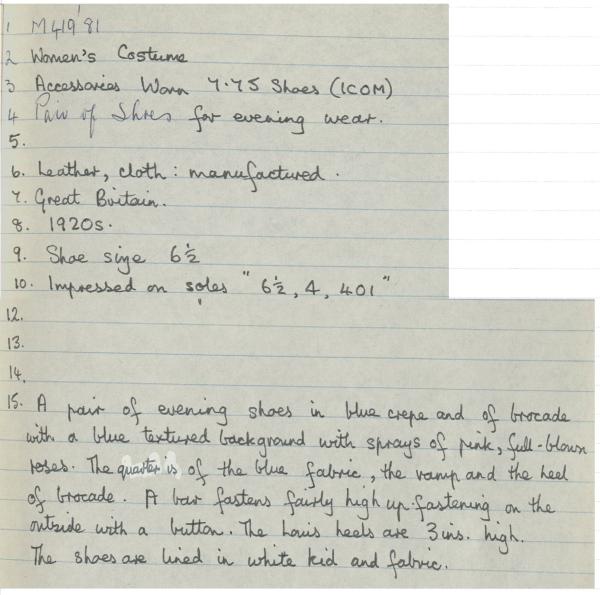 1 M419'81
2 Women's Costume
3 Accessories Worn 7.75 Shoes (ICOM)
4 Pair of Shoes for evening wear.
5.
6. Leather, cloth : manufactured.
7. Great Britain.
8. 1920s.
9. Shoe size 6½
10. Impressed on soles "6½, 4, 401"
12.
13.
14.
15. A pair of evening shoes in blue crepe and of brocade
with a blue textured background with sprays of pink, full-blown
roses. The quarter is of the blue fabric, the vamp and the heel
of brocade. A bar fastens fairly high up fastening on the
outside with a button. The Louis heels are 3 ins. high.
The shoes are lined in white kid and fabric.